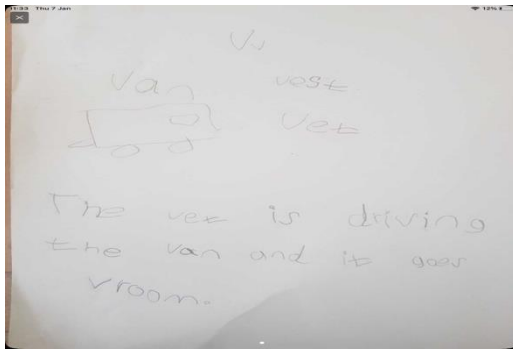 11:33 Thu 7 Jan 12%
Vv
van vest
vet
The vet is driving
the van and it goes
vroom.